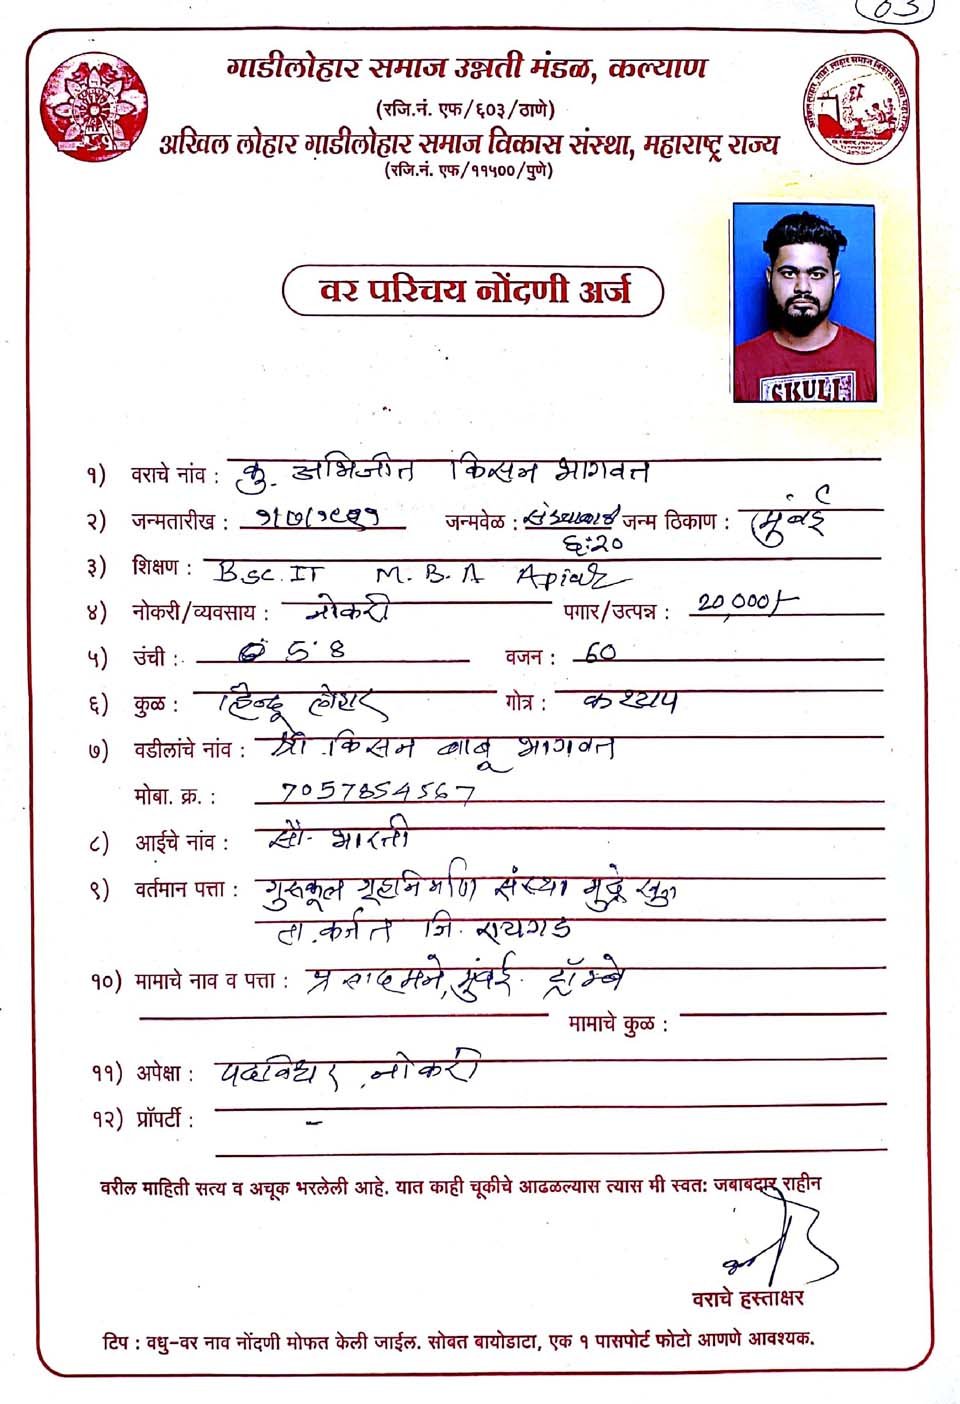 03
गाडीलोहार समाज उन्नती मंडळ, कल्याण
(रजि.नं. एफ/६०३/ठाणे)
अखिल लोहार गाडीलोहार समाज विकास संस्था, महाराष्ट्र राज्य
(रजि.नं. एफ/११५००/पुणे)
वर परिचय नोंदणी अर्ज
SKULL
१) वराचे नांव : कु. अभिजीत किसन भागवत
२) जन्मतारीख : जन्मवेळ : संध्याकाळी जन्म ठिकाण : मुंबई
६:२०
३) शिक्षण : B.sc.IT M.B.A
४) नोकरी/व्यवसाय : नोकरी पगार/उत्पन्न : 20,000/-
५) उंची : 5'8 वजन : 60
६) कुळ : हिन्दू लोहार गोत्र : कश्यप
७) वडीलांचे नांव : श्री. किसन बाबू भागवत
मोबा. क्र. : 7057854567
८) आईचे नांव : सौ. भारती
९) वर्तमान पत्ता : गुरुकूल गृहनिर्माण संस्था मुद्रे खुर्द
ता. कर्जत जि. रायगड
१०) मामाचे नाव व पत्ता : प्रसाद माने, मुंबई. ट्रॉम्बे
मामाचे कुळ :
११) अपेक्षा : पदविधर, नोकरी
१२) प्रॉपर्टी : -
वरील माहिती सत्य व अचूक भरलेली आहे. यात काही चूकीचे आढळल्यास त्यास मी स्वत: जबाबदार राहीन
वराचे हस्ताक्षर
टिप : वधु-वर नाव नोंदणी मोफत केली जाईल. सोबत बायोडाटा, एक १ पासपोर्ट फोटो आणणे आवश्यक.